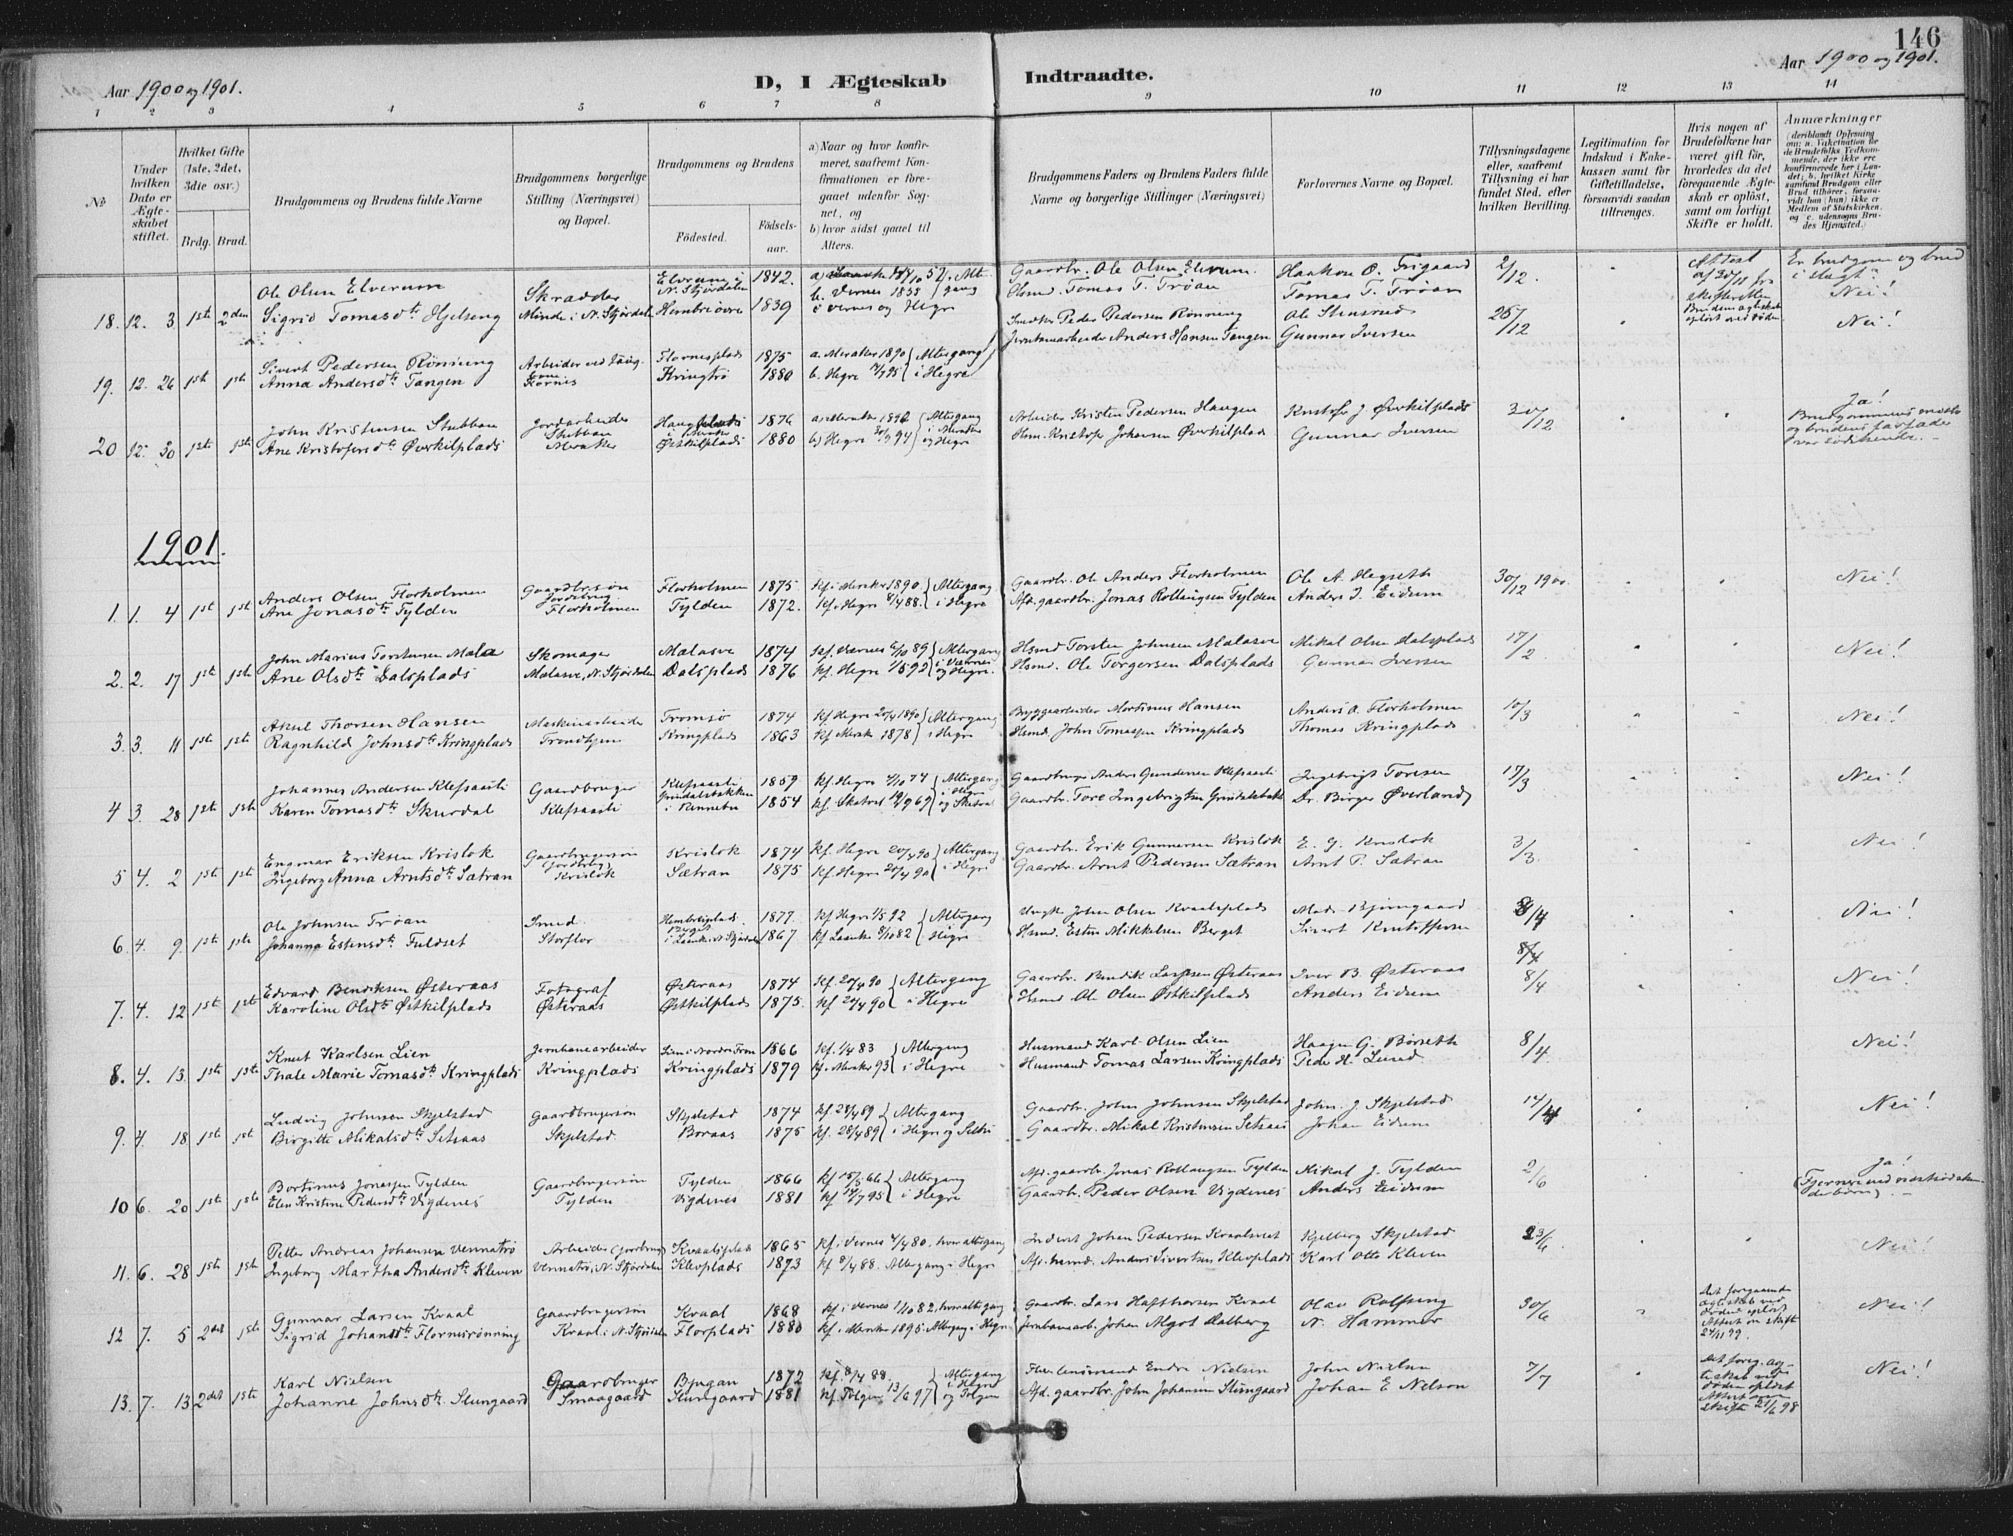 146
Aar 1900 og 1901.
D, I Ægteskab Indtraadte.
Aar 1900 og 1901.
1 2 3 4 5 6 7 8 9 10 11 12 13 14
№
Under hvilken Dato er Ægteskabet stiftet.
Hvilket Gifte (1ste, 2det, 3die osv.)
Brdg. Brud.
Brudgommens og Brudens fulde Navne
Brudgommens borgerlige Stilling (Næringsvei) og Bopæl.
Brudgommens og Brudens
Fødested. Fødselsaar.
a) Naar og hvor konfirmeret, saafremt Konfirmationen er foregaaet udenfor Sognet, og
b) hvor sidst gaaet til Alters.
Brudgommens Faders og Brudens Faders fulde Navne og borgerlige Stillinger (Næringsvei)
Forlovernes Navne og Bopæl.
Tillysningsdagene eller, saafremt Tillysning ei har fundet Sted, efter hvilken Bevilling.
Legitimation for Indskud i Enkekassen samt for Giftetilladelse, forsaavidt saadan tiltrænges.
Hvis nogen af Brudefolkene har været gift før, hvorledes da det foregaaende Ægteskab er opløst, samt om lovligt Skifte er holdt.
Anmærkninger
(deriblandt Oplysning om: a. Vakcination for Brudefolks Vedkommende, der ikke ere konfirmerede her i Landet; b. hvilket Kirkesamfund Brudgom eller Brud tilhører, forsaavidt han (hun) ikke er Medlem af Statskirken, og c. udensogns Brudes Hjemsted.)
Ole Olsen Elverum Skrædder Elverum i N. Stjørdalen 1842. Gaardbr. Ole Olsen Elverum Haakon O. Trøgaard 2/12. Attest af 30/11 fra Er brudgom og brud i slægt?
18. 12. 3 1ste 2den Sigrid Tomasdtr Hjelseng Minde i N. Stjørdalen Hembreøvre 1839 b. Værnes 1855 i Værnes og Hegre Husmd. Tomas T. Trøan Tomas T. Trøan skifteretten Nei!
Sivert Pedersen Rønning Arbeider Flornesplads 1875 a. Meraker 1890 Altergang Smed Peder Pedersen Rønning Ole Stensrud 26/12 " Nei!
19. 12. 26 1ste 1ste Anna Andersdtr Tangen Flornes Kringtrø 1880 b. Hegre 95 i Hegre Jernbanearbeider Anders Hansen Tangen Gunnar Iversen
John Kristensen Stubban Jordarbeider 1876 a. Meraker Altergang Arbeider Kristen Pedersen Haugen Kristofer J. Øverkilplads 30/12 " " Ja!
20 12. 30 1ste 1ste Ane Kristofersdtr Øverkilplads Stubban Meraker Østkilplads 1880 b) Hegre 94 i Meraker og Hegre Hsm. Kristofer Johansen Øverkilplads Gunnar Iversen Brudgommens moder og brudens farfader var sødskende.
1901.
Anders Olsen Florholmen Gaardbr.søn Florholmen 1875 Kf. i Meraker 1890 Altergang Gaardbr. Ole Anders Florholmen Ole A. Hegseth 30/12 1900 " " Nei!
1. 1. 4 1ste 1ste Ane Jonasdtr Tylden Jordbrug Florholmen Tylden 1872. Kf. Hegre 88. i Hegre Afd. gaardbr. Jonas Rollaugsen Tylden Anders I. Eidum
John Marius Torstensen Malasve Skomager Malasve 1874 Kf. Værnes 6/10 89 Altergang Hsmd Torsten Johnsen Malasve Mikal Olsen Dalsplads 17/2 " " Nei!
2. 2. 17 1ste 1ste Ane Olsdtr Dalsplads Malasve, N. Stjørdalen Dalsplads 1876 kf. Hegre 1/5 92 i Værnes og Hegre. Hsmd. Ole Torgersen Dalsplads Gunnar Iversen
Aksel Thorsen Hansen Maskinarbeider Tromsø 1874 Kf Hegre 20/4 1890 Altergang Bryggearbeider Martinus Hansen Anders A. Florholmen 10/3 " " Nei!
3. 3. 11 1ste 1ste Ragnhild Johnsdtr Kringplads Trondhjem Kringplads 1863 kf Merak 1878 i Hegre Hsmd. John Tomassen Kringplads Thomas Kringplads
Johannes Andersen Klefsaasli Gaardbruger Klefsaasli 1859 Kf. Hegre 4/10 74 Altergang Gaardbruger Anders Gundersen Klefsaasli Ingebrigt Toresen 17/3 " " Nei!
4 3. 28 1ste 1ste Karen Tomasdtr Skurdal Klefsaasli Grindalsbakken i Rennebu 1854 kf. 69 i Hegre Gaardbr. Tore Ingebrigtsen Grindalsbak Dr. Birger Øverland
Engmar Eriksen Krislok Gaardbrugersøn Krislok 1874 kf. Hegre 20/4 90 Altergang Gaardbr. Erik Gunnersen Krislok E. G. Krislok 3/3. " " Nei!
5 4. 2 1ste 1ste Ingeborg Anna Arntsdtr Sætran (jordbrug) Krislok Sætran 1875 Kf. Hegre 20/4 90 i Hegre Gaardbr. Arnt Pedersen Sætran Arnt P. Sætran
Ole Johnsen Trøan Smed Hembreplads 1877. kf Hegre 1/5 92 Altergang Ungk. John Olsen Kvaalsplads Mads Bjerngaard 8/4 " " Nei!
6. 4. 9. 1ste 1ste Johanna Estensdtr Fuldset Storflor i Laanke, N. Stjørdalen 1867 kf Laanke 8/10 82 Hegre Hsmd. Esten Mikkelsen Berget Sivert Kristoffersen
8/4
Edvard Bendiksen Østeraas Fotograf Østeraas 1874 Kf. 20/4 90 Altergang Gaardbr. Bendik Larssen Østeraas Iver B. Østeraas 8/4 " " Nei!
7. 4. 12 1ste 1ste Karoline Olsdtr Østkilplads Østeraas Østkilplads 1875. kf 20/4 90 i Hegre Hsmd Ole Olsen Østkilplads Anders Eidum
Knut Karlsen Lien Jernbanearbeider Lien i Nordre Fron 1866 kf. 83 Altergang Husmand Karl Olsen Lien Haagen G. Børseth 8/4 " " Nei!
8. 4. 13. 1ste 1ste Thale Marie Tomasdtr Kringplads Kringplads Kringplads 1879 Kf. Meraker 93 i Hegre Husmand Tomas Larsen Kringplads Peder H. Lund
Ludvig Johnsen Skjelstad Gaardbrugersøn Skjelstad 1874 kf 28/4 89 Altergang Gaardbr. John Johnsen Skjelstad John J. Skjelstad 14/4 " " Nei!
9. 4. 18 1ste 1st Birgitte Mikalsdtr Setsaas Skjelstad. Boraas 1875 kf. 28/4 89 i Hegre og Selbu Gaardbr. Mikal Kristensen Setsaas Johan Eidum
Bortinus Jonassen Tylden Gaardbrugersøn Tylden 1866 Altergang Afd. gaardbr. Jonas Rollaugsen Tylden Mikal J. Tylden 2/6 " " Ja!
10 6. 20 1ste 1ste Elen Kristine Pedersdtr Vigdenes Tylden Vigdenes 1881 kf 95 i Hegre Gaardbr. Peder Olsen Vigdenes Anders Eidum
Petter Andreas Johansen Vennatrø Arbeider (jordbrug) Kvaalsplads 1865 kf. i Værnes 80, hvor altergang Inderst Johan Pedersen Kjelberg Skjelstad 23/6. " " Nei!
11. 6. 28 1ste 1ste Ingeborg Martha Andersdtr Kleven Vennatrø, N. Stjørdalen Klevplads 1873 kf 88. Altergang i Hegre Afd. hsmd. Anders Sivertsen Klevplads Karl Otto Kleven
Gunnar Larsen Kvaal Gaardbrugersøn Kvaal 1868 Kf. i Værnes 1/10 82, hvor altergang Gaardbr. Lars Hafthorsen Kvaal Olav Rolfseng 30/6 " Det foregaaende ægteskab ved døden opløst Attest om skifte 24/11 99. Nei!
12 7. 5 2det 1ste Sigrid Johansdtr Flornesrønning Kvaal i N. Stjørdalen Florplads 1880 kf. i Meraker 1895. Altergang i Hegre Jernbanearb. Johan Algot Halberg N. Hammer
Karl Nielsen Gaardbruger Bjugan 1872 Kf. 8/4 88. Altergang Endre Nielsen John Nielsen 7/7 Det foreg. ægteskab ved døden opløst Attest om skifte 21/6 98 Nei!
13. 7. 13 2det 1ste Johanne Johnsdtr. Slungaard Smaagaard Slungaard 1881 kf. Tolgen 13/6 97 i Hegre og Tolgen Afd. gaardbr. John Johansen Slungaard Johan E Nelson